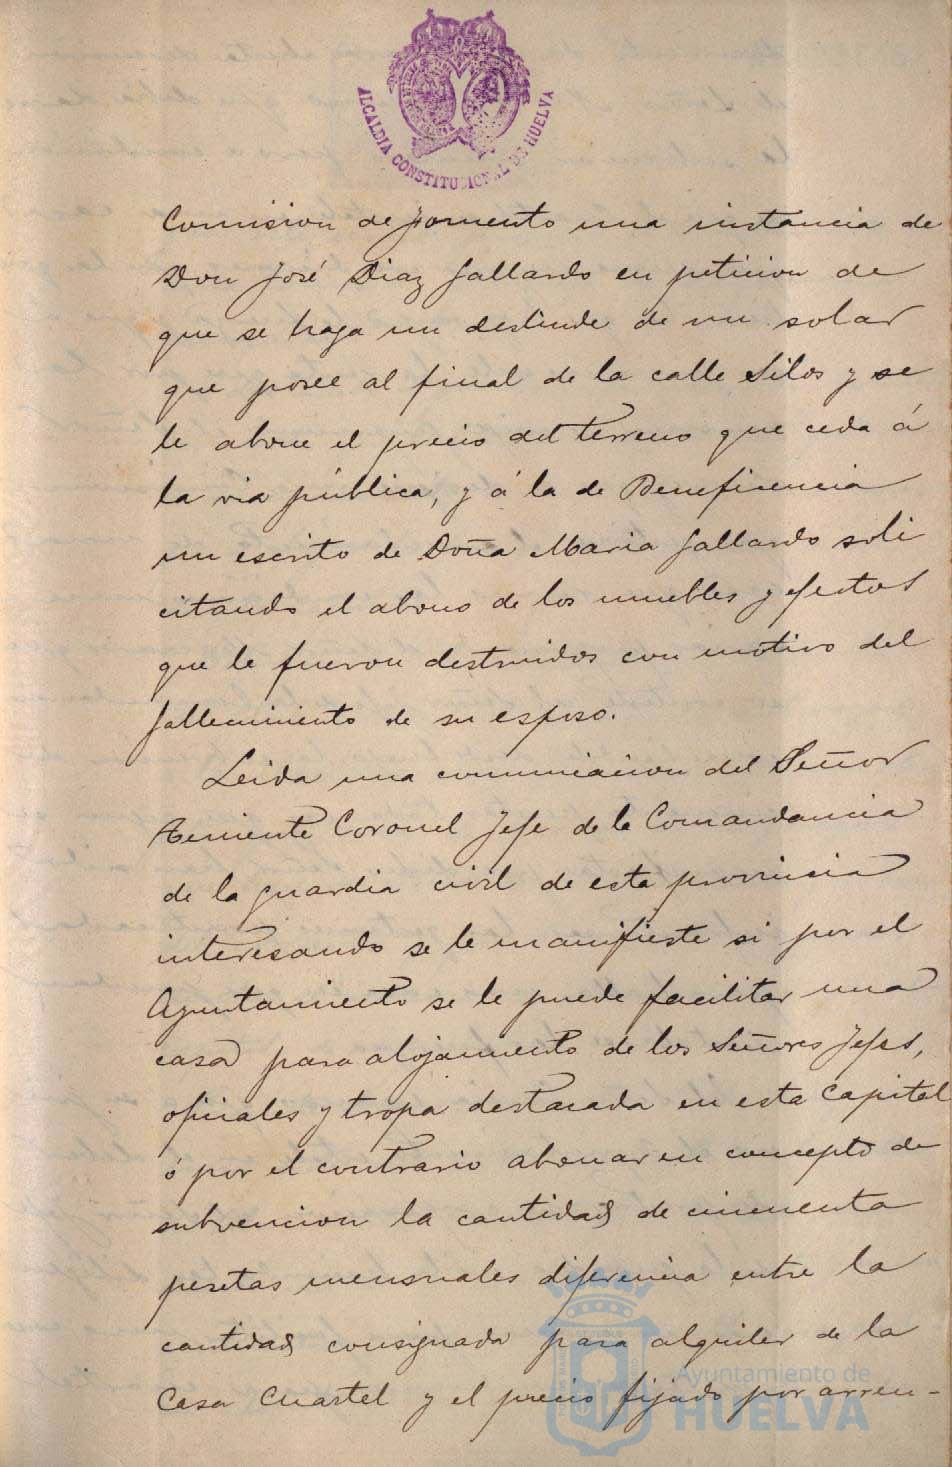 ALCALDIA CONSTITUCIONAL DE HUELVA
Comision de fomento una instancia de
Don José Diaz Gallardo en peticion de
que se haga un deslinde de un solar
que posee al final de la calle Silos y se
le abone el precio del terreno que ceda á
la via pública, y á la de Beneficencia
un escrito de Doña Maria Gallardo soli
citando el abono de los muebles y efectos
que le fueron destruidos con motivo del
fallecimiento de su esposo.
Leida una comunicacion del Señor
Teniente Coronel Jefe de la Comandancia
de la guardia civil de esta provincia
interesando se le manifieste si por el
Ayuntamiento se le puede facilitar una
casa para alojamiento de los Señores Jefes,
oficiales y tropa destacada en esta Capital
ó por el contrario abonar en concepto de
subvencion la cantidad de cincuenta
pesetas mensuales diferencia entre la
cantidad consignada para alquiler de la
Casa Cuartel y el precio fijado por arren-
Ayuntamiento de
HUELVA